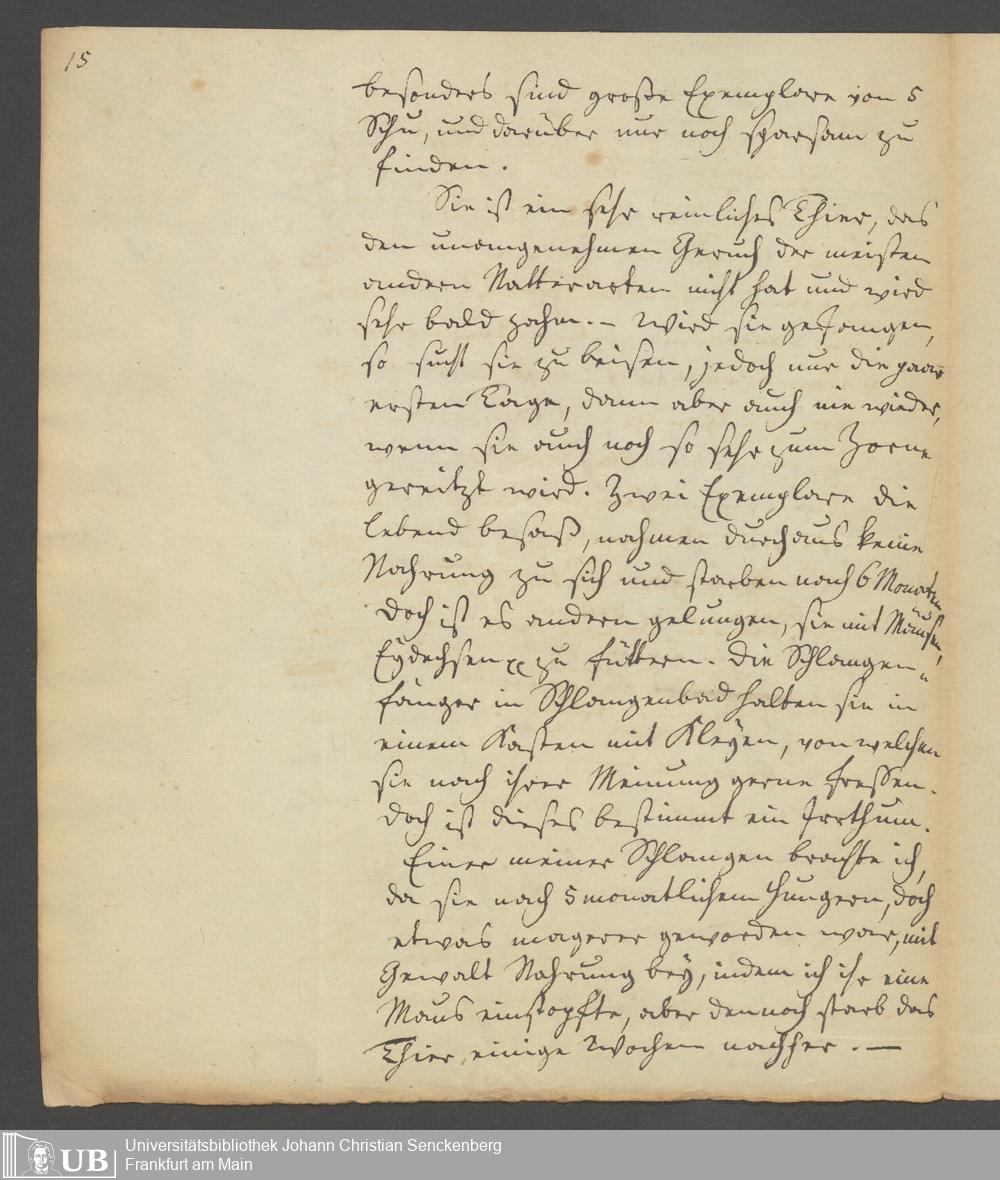 15
besonders sind große Exemplare von 5
Schu, und darüber nur noch sparsam zu
finden.
Sie ist ein sehr reinliches Thier, das
den unangenehmen Geruch der meisten
andern Natterarten nicht hat und wird
sehr bald zahm. – Wird sie gefangen,
so sucht sie zu beisen, jedoch nur die paar
ersten Tage, dann aber auch nie wieder,
wenn sie auch noch so sehr zum Zorne
gereitzt wird. Zwei Exemplare die
lebend besaß, nahmen durchaus keine
Nahrung zu sich und starben nach 6 Monaten
doch ist es andern gelungen, sie mit Mäusen,
Eydechsen zu füttern. Die Schlangen"
fänger in Schlangenbad halten sie in
einem Kasten mit Kleyen, von welchen
sie nach ihrer Meinung gerne fressen.
doch ist dieses bestimmt ein Irrthum.
Einer meiner Schlangen brachte ich,
da sie nach 5 monatlichem Hungern, doch
etwas magerer geworden war, mit
Gewalt Nahrung bey, indem ich ihr eine
Maus einstopfte, aber dennoch starb das
Thier einige Wochen nachher. —
UB
Universitätsbibliothek Johann Christian Senckenberg
Frankfurt am Main